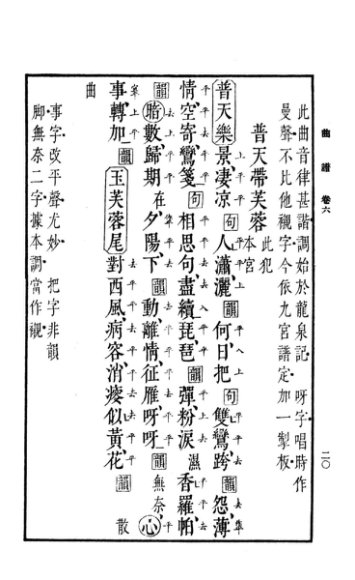 曲譜 卷六 二〇
此曲音律甚諧調始於龍泉記 呀字唱時作
曼聲不比他襯字今依九宮譜定加一掣板
普天帶芙蓉 此犯本宮
普天樂景凄涼句人瀟灑韻何日把句雙鸞跨韻怨薄
情空寄鸞箋句相思句盡續琵琶韻彈粉淚濕香羅帕
韻暗數歸期在夕陽下韻動離情征雁呀呀韻無奈心
事轉加韻玉芙蓉尾對西風病容消瘦似黃花韻 散
曲
事字改平聲尤妙 把字非韻
脚無奈二字據本調當作襯